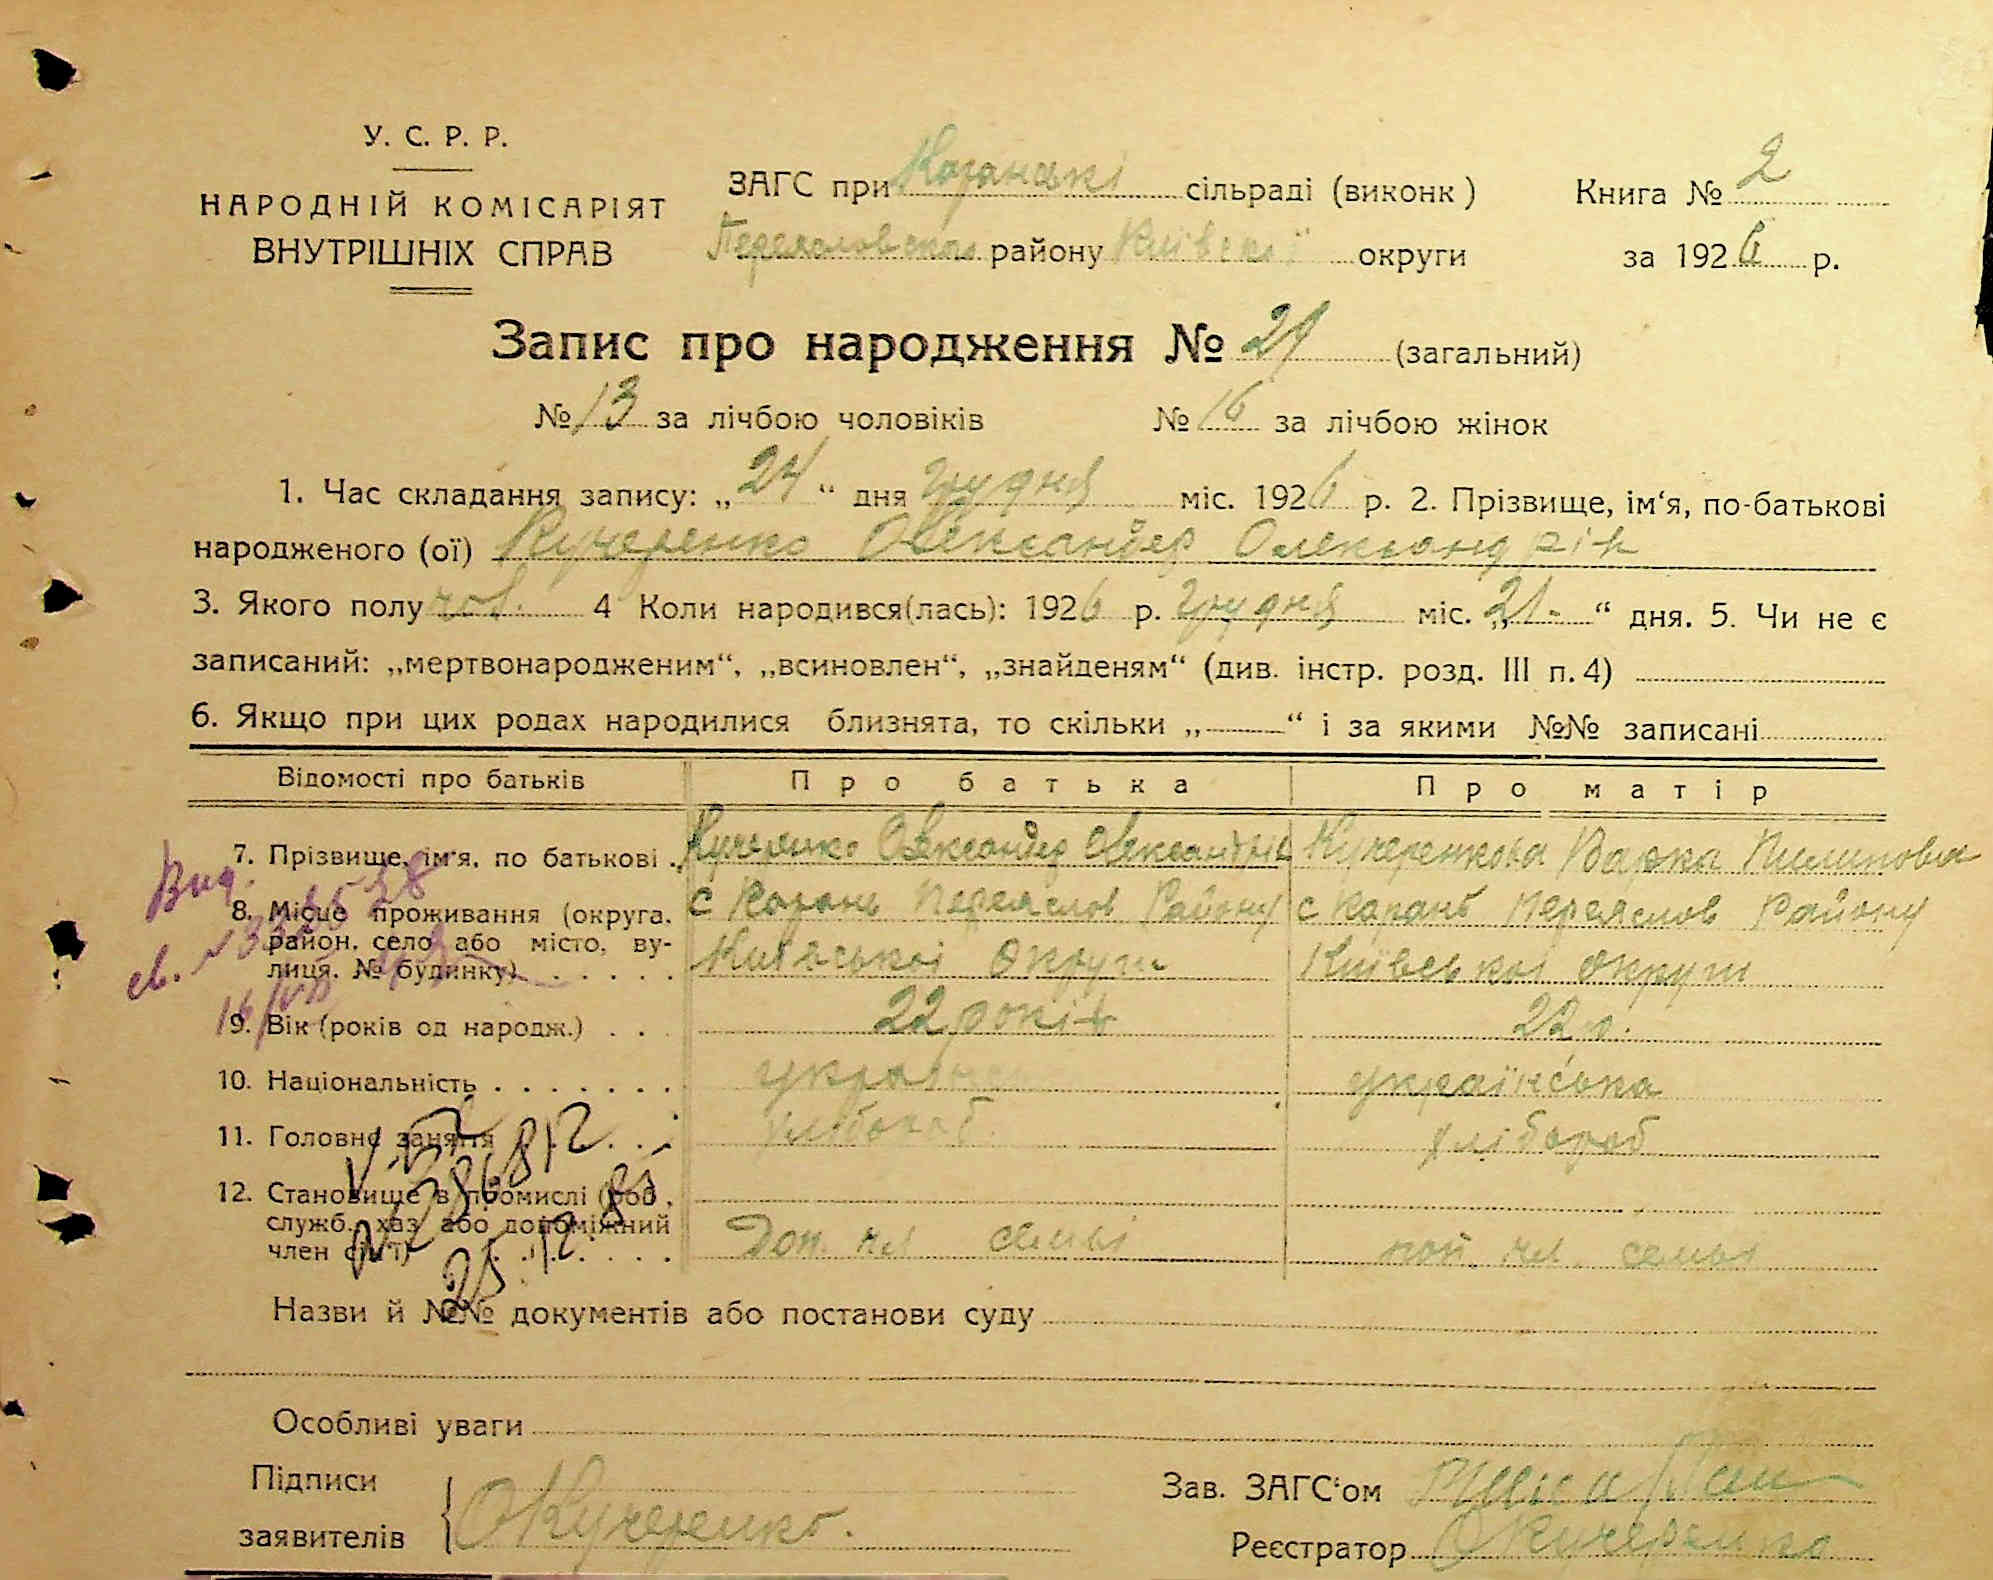 У. С. Р. Р.
НАРОДНІЙ КОМІСАРІЯТ
ВНУТРІШНІХ СПРАВ
ЗАГС при Каранські сільраді (виконк)
Переясловського району Київської округи
Книга № 2
за 1926 р.
Запис про народження № 29 (загальний)
№ 13 за лічбою чоловіків № 16 за лічбою жінок
1. Час складання запису: „24“ дня грудня міс. 1926 р. 2. Прізвище, ім‘я, по-батькові
народженого (ої) Кучеренко Олександер Олександрів
3. Якого полу чол. 4 Коли народився(лась): 1926 р. грудня міс. „21-“ дня. 5. Чи не є
записаний: „мертвонародженим“, „всиновлен“, „знайденям“ (див. інстр. розд. III п. 4)
6. Якщо при цих родах народилися близнята, то скільки „——“ і за якими №№ записані
Відомості про батьків Про батька Про матір
7. Прізвище, ім‘я, по батькові Кучеренко Олександер Олександрів Кучеренкова Варка Пилиповна
8. Місце проживання (округа, район, село або місто, вулиця, № будинку)
с Карань Переяслов Району с Карань Переяслов Району
Київської Округи Київської округи
9. Вік (років од народж.) . . 22 років 22 р.
10. Національність українец українська
11. Головне заняття хлібороб хлібороб
12. Становище в промислі (роб., служб., хаз або допоміжний член сім‘ї)
Доп. чл семьі поп. чл. семьі
Вид.
св. №
16/VII
25.12.85
Назви й №№ документів або постанови суду
Особливі уваги
Підписи
заявителів ОКучеренко.
Зав. ЗАГС‘ом
Реєстратор ОКучеренко